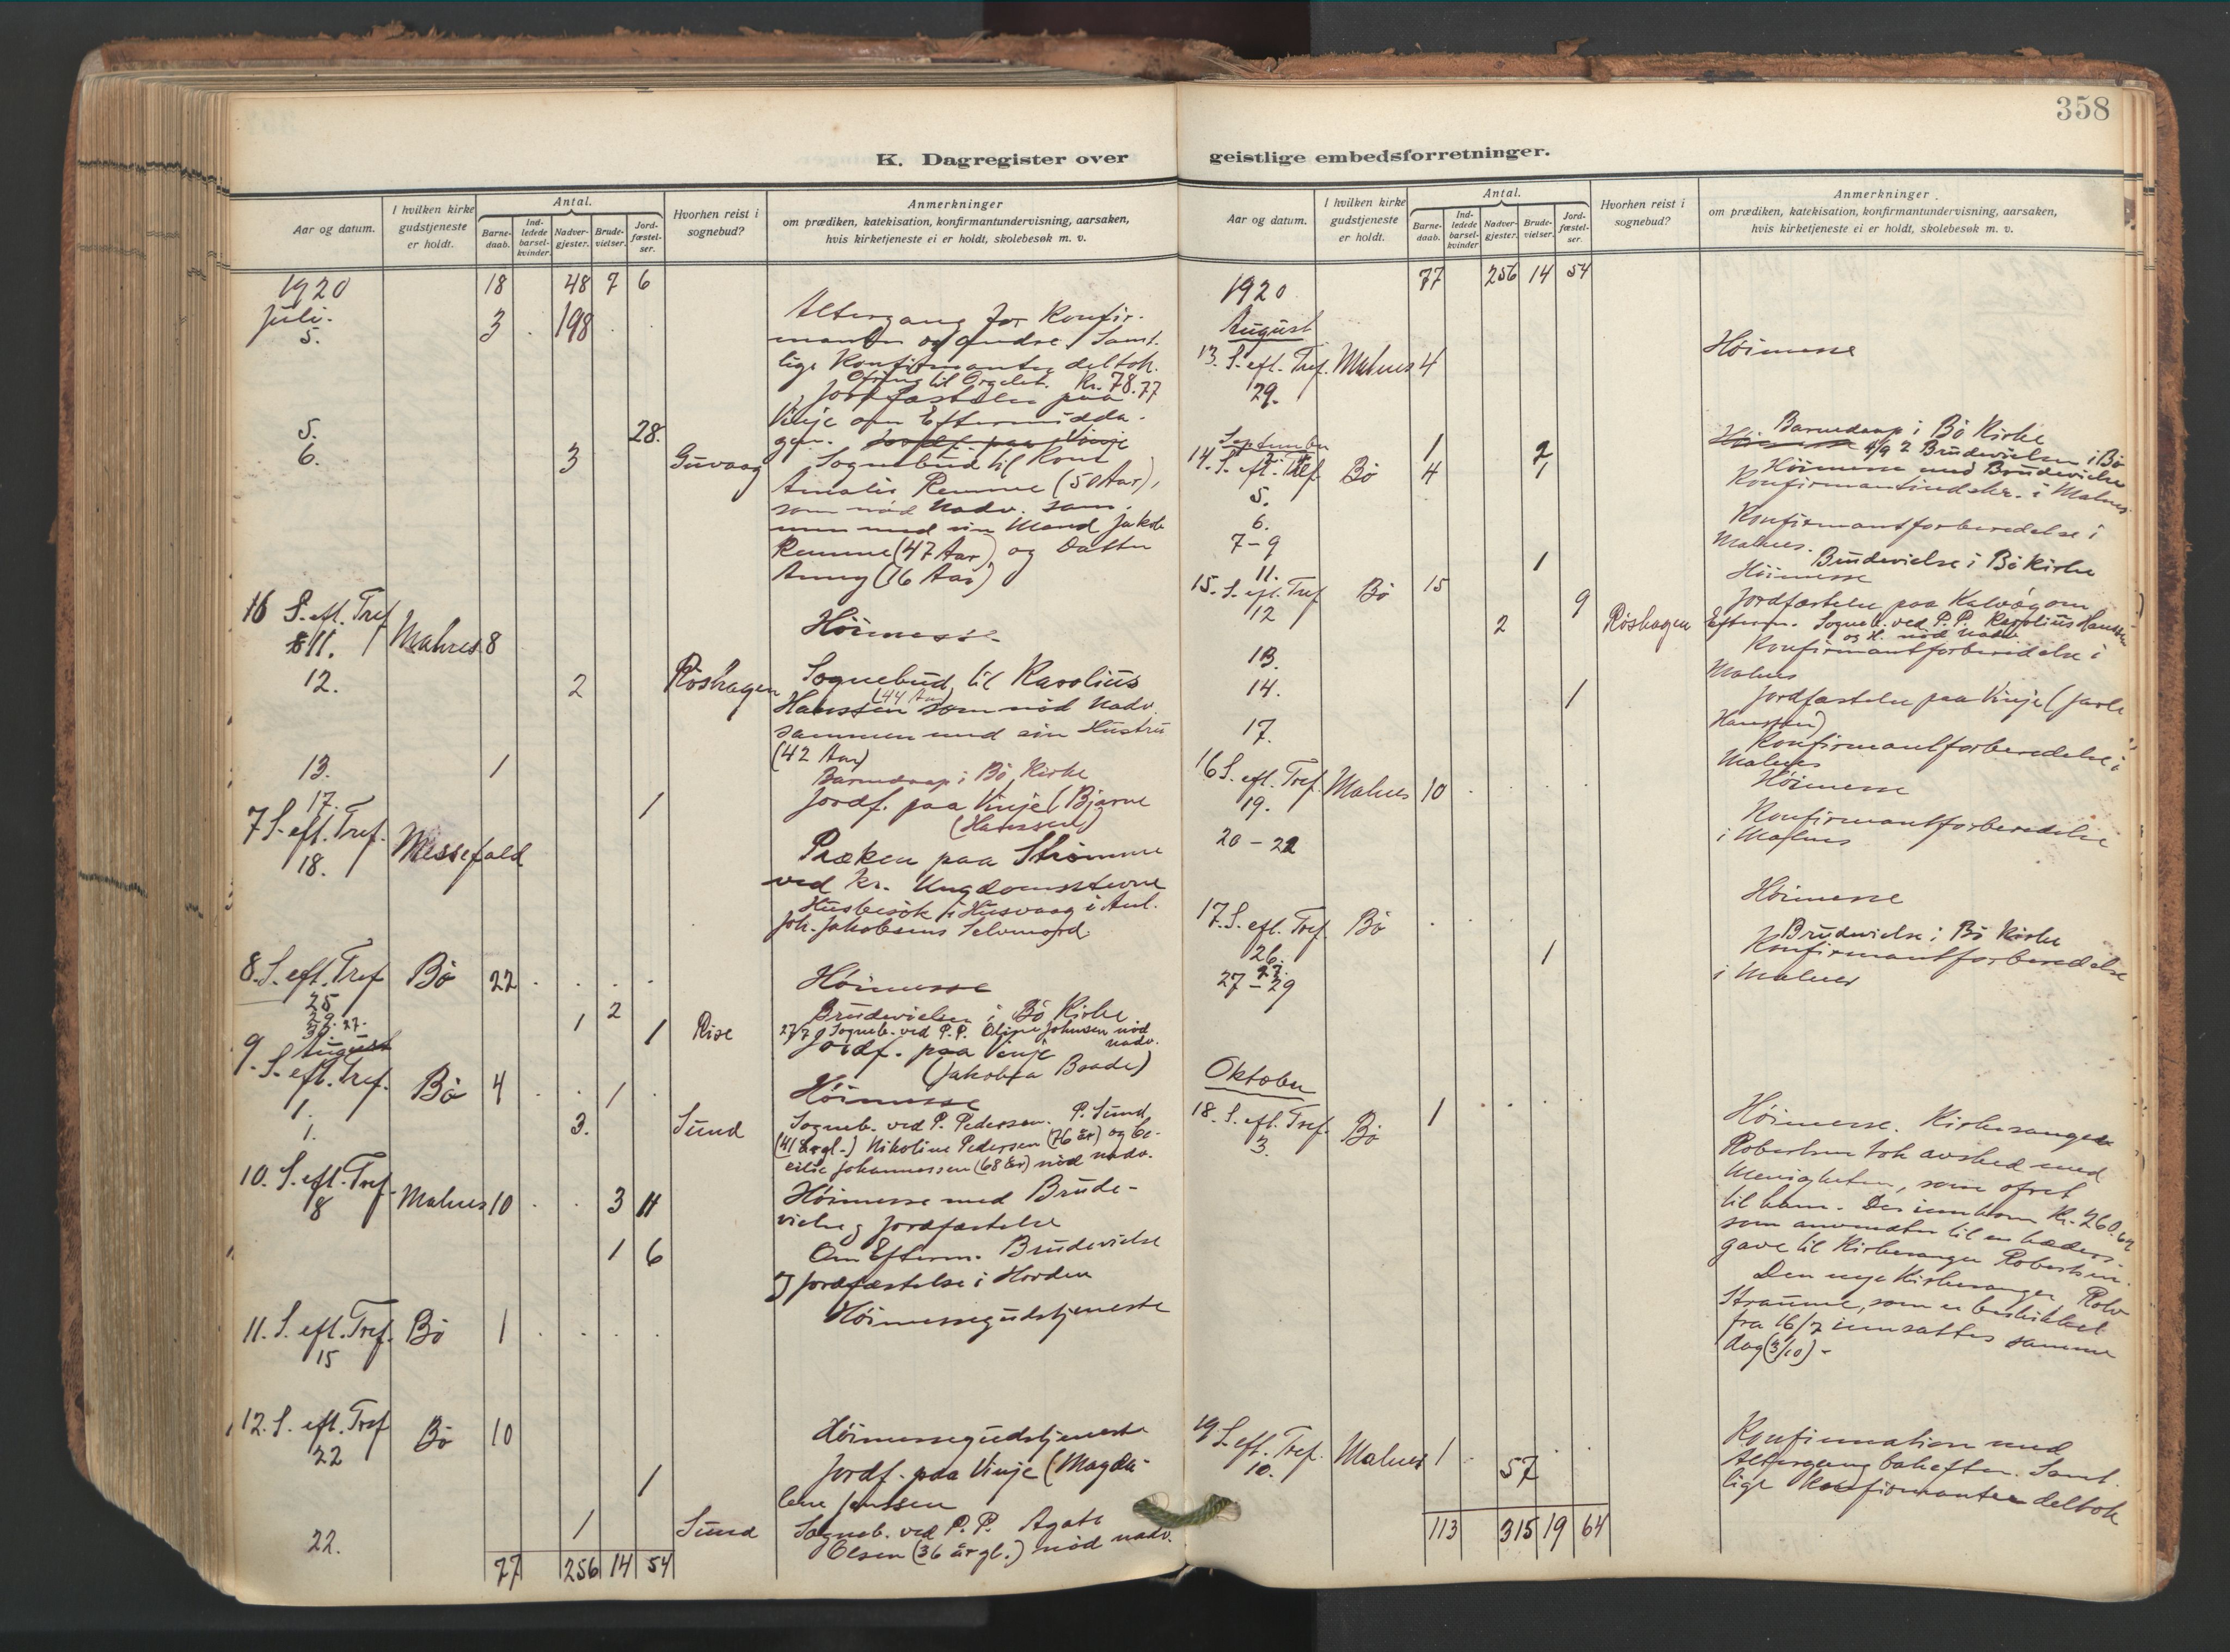 358
K. Dagregister over
geistlige embedsforretninger.
Aar og datum.
I hvilken kirke gudstjeneste er holdt.
Antal.
Barne-daab.
Ind-ledede barsel-kvinder.
Nadver-gjester.
Brude-vielser.
Jord-fæstel-ser.
Hvorhen reist i sognebud?
Anmerkninger
om prædiken, katekisation, konfirmantundervisning, aarsaken,
hvis kirketjeneste ei er holdt, skolebesøk m. v.
1920 18 48 7 6
Juli.
5. 3 198 Altergang for Konfir-
manter og andre. Samt-
lige Konfirmanter deltok.
Ofring til Orgelet. Kr. 78.77
5. 28. Jordfæstelse paa
Vinje om Eftermidda-
gen.
6. 3 Guvaag Sognebud til Kone
Amalie Remme (50 Aar),
som nød Nadv. sam-
men med sin Mand Jakob
Remme (47 Aar) og Datter
Anny (16 Aar)
6 S. eft. Tref.
11. Malnes 8 Høimesse
12. 2 Røshagen Sognebud til Karolius
Hanssen (44 Aar) som nød Nadv.
sammen med sin Hustru
(42 Aar)
13. 1 Barnedaap i Bø Kirke
17. 1 Jordf. paa Vinje (Bjarne
Hanssen)
7 S. eft. Tref.
18. Messefald Præken paa Strømme
ved kr. Ungdomsstevne
Husbesøk i Husvaag i Anl.
Joh. Jakobsens Selvmord.
8. S. eft. Tref Bø 22 Høimesse
25
29. 2 Brudevielser i Bø Kirke
27. 1 Rise 27/7 Sogneb. ved P.P. Oline Johnsen nød nadv.
30. 1 Jordf. paa Vinje
(Jakobea Baade)
August
9. S. eft. Tref.
1. Bø 4 1 Høimesse
1. 3. Sund Sogneb. ved P. Pedersen. P. Sund
(41 år gl.) Nikoline Pedersen (76 år) og Ce-
cilie Johannessen (68 år) nød nadv.
10. S. eft. Tref.
8 Malnes 10 3 11 Høimesse med Brude-
vielse og Jordfæstelse
1 6 Om Efterm. Brudevielse
og Jordfæstelse i Hovden
11. S. eft. Tref. Bø 1 Høimessegudstjeneste
15
12. S. eft. Tref
22 Bø 10 Høimessegudstjeneste
1 Jordf. paa Vinje (Magda-
lene Jenssen
22. 1 Sund Sogneb. ved P.P. Agate
Olsen (36 år gl.) nød nadv.
77 256 14 54
Aar og datum.
I hvilken kirke gudstjeneste er holdt.
Antal.
Barne-daab.
Ind-ledede barsel-kvinder
Nadver-gjester.
Brude-vielser.
Jord-fæstel-ser.
Hvorhen reist i sognebud?
Anmerkninger.
om prædiken, katekisation, konfirmantundervisning, aarsaken,
hvis kirketjeneste ei er holdt, skolebesøk m. v.
1920 77 256 14 54
August
13. S. eft. Tref. Malnes 4 Høimesse
29.
September 1 Barnedaap i Bø Kirke
2 4/9 2 Brudevielser i Bø
14. S. eft. Tref. Bø 4 1 Høimesse med Brudevielse
5.
6. Konfirmantindskr. i Malnes
7-9 Konfirmantforberedelse i
Malnes.
11. 1 Brudevielse i Bø Kirke
15. S. eft. Tref. Bø 15 Høimesse
12 9 Jordfæstelse paa Kalvåg om
2 Røshagen Efterm. Sogneb. ved P.P. Karolius Hanssen
og H. nød nadv
13. Konfirmantforberedelse i
Malnes
14. 1 Jordfæstelse paa Vinje (Jarle
Hanssen)
17. Konfirmantforberedelse i
Malnes
16 S. eft. Tref. Malnes 10 Høimesse
19.
20 - 22 Konfirmantforberedelse
i Malnes
17. S. eft. Tref. Bø Høimesse
26.
27. 1 Brudevielse i Bø Kirke
27 - 29 Konfirmantforberedelse
i Malnes
Oktober
18. S. eft. Tref. Bø 1 Høimesse. Kirkesanger
3. Robertsen tok avsked med
Menigheten, som ofret
til ham. Der innkom Kr. 260.64
som anvendtes til en hæders-
gave til Kirkesanger Robertsen.
Den nye Kirkesanger Rolv
Straume, som er beskikket
fra 16/7 innsattes samme
dag (3/10) -
19 S. eft. Tref. Malnes 1 57 Konfirmation med
10. Altergang bakefter. Samt-
lige Konfirmanter deltok
113 315 19 64